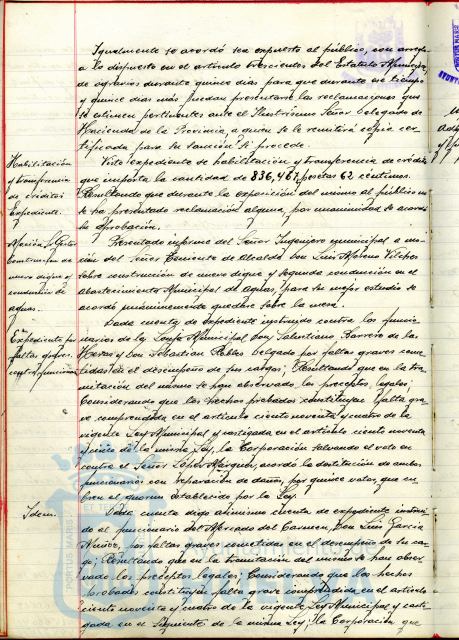 Igualmente se acordó sea expuesto al público, con arreglo
a lo dispuesto en el artículo trescientos del Estatuto Municipal,
de agravios durante quince días para que durante ese tiempo
y quince días más puedan presentarse las reclamaciones que
se estimen pertinentes ante el Ilustrísimo Señor Delegado de
Hacienda de la Provincia, a quien se le remitirá copia cer-
tificada para su sanción si procede.
Habilitación
y transferencia
de créditos
Expediente.
Visto expediente de habilitación y transferencia de crédito
que importa la cantidad de 836,467 pesetas 62 céntimos.
Resultando que durante la exposición del mismo al público no
se ha presentado reclamación alguna, por unanimidad se acordó
su aprobación.
Moción
construcción de
nuevo dique y
conducción de
aguas.
Presentado informe del Señor Ingeniero municipal a mo-
ción del Señor Teniente de Alcalde Don Luis Moreno Vilches
sobre construcción de nuevo dique y segunda conducción en el
abastecimiento Municipal de aguas, para su mejor estudio se
acordó unánimemente quedase sobre la mesa.
Expediente por
faltas graves
contra funcionarios
Dada cuenta de expediente instruido contra los funcio-
narios de la Municipal Don Salustiano Barrero de las
Heras y Don Sebastian Robles Delgado por faltas graves come-
tidas en el desempeño de sus cargos; Resultando que en la tra-
mitación del mismo se han observado los preceptos legales;
Considerando que los hechos probados constituyen falta gra-
ve comprendida en el artículo ciento noventa y cuatro de la
vigente Ley Municipal y castigada en el artículo ciento noventa
y cinco de la misma Ley, la Corporación salvando el voto en
contra el Señor López Márquez, acordó la destitución de ambos
funcionarios con reparación de daños, por quince votos, que cu-
bren el quorum establecido por la Ley.
Idem.
Dada cuenta digo asimismo cuenta de expediente instrui-
do al funcionario del Mercado del Carmen, Don Luis García
Núñez, por faltas graves cometidas en el desempeño de su car-
go; Resultando que en la tramitación del mismo se han obser-
vado los preceptos legales; Considerando que los hechos
probados constituyen falta grave comprendida en el artículo
ciento noventa y cuatro de la vigente Ley Municipal y casti-
gada en el siguiente de la misma Ley; la Corporación que
Ayuntamiento de